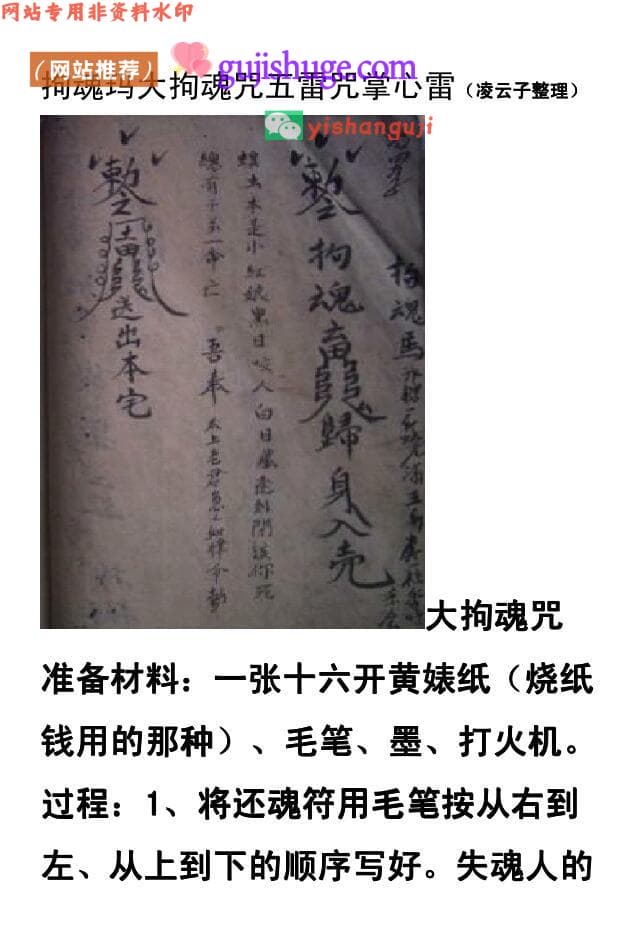 网站专用非资料水印
（网站推荐）
gujishuge.com
拘魂玛大拘魂咒五雷咒掌心雷（凌云子整理）
yishanguji
拘魂馬
拘魂
歸身入壳
本是小紅娘黑日咬人白日
吾奉太上老君急急如律令敕
送出本宅
大拘魂咒
准备材料：一张十六开黄婊纸（烧纸
钱用的那种）、毛笔、墨、打火机。
过程：1、将还魂符用毛笔按从右到
左、从上到下的顺序写好。失魂人的